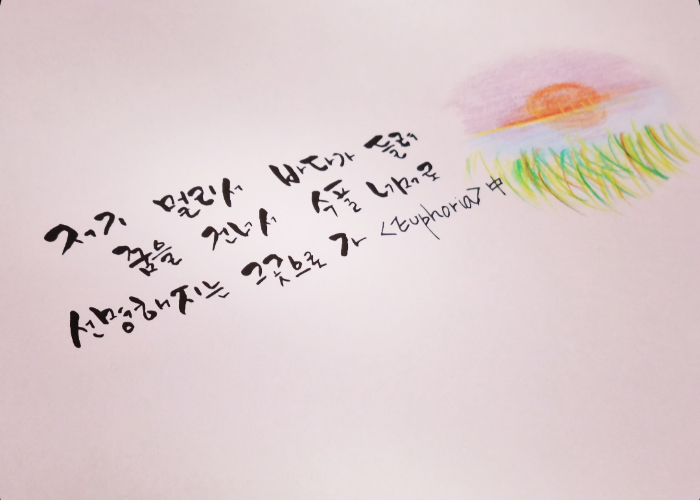 저기 멀리서 바다가 들려
꿈을 건너서 수풀 너머로
선명해지는 그곳으로 가 <Euphoria> 中